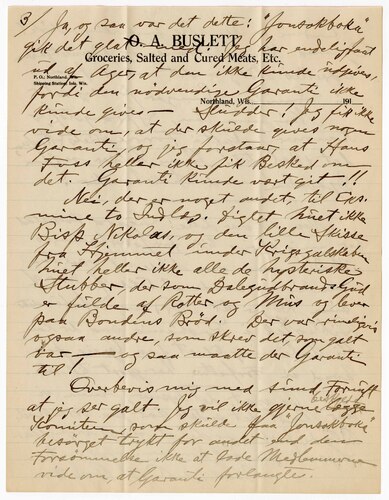 3
O. A. BUSLETT
Groceries, Salted and Cured Meats, Etc.
P. O.; Northland, Wis.
Shipping Station: Iola, Wis.
Northland, Wis. 191
Ja, og saa var det dette: "Jonsokboka"
gik det galt med! Jeg har endelig faat
ud af Ager, at den ikke kunde udgives,
fordi den nødvendige Garanti ikke
kunde gives — Sludder! Jeg fik ikke
vide om, at der skulde gives nogen
Garanti og jeg forstaar, at Hans
Foss heller ikke fik Besked om
det. Garanti kunde vært git!!
Nei, der er noget andet, til
mine to Indlæg. Digtet huet ikke
Bisp Nikolas, og den lille Skisse
fra Himmel under Krigsgalskaben
huet heller ikke alle de hysteriske
Stubber, der som Dalegudbrands Gud
er fulde af Rotter og Mus og lever
paa Bondens Brød. Der var rimeligvis
ogsaa andre, som skrev det som galt
var — og saa maatte der Garanti
til!
Overbevis mig med sund Fornuft
at jeg ser galt. Jeg vil ikke gjerne
Komiteen som skulde faa "Jonsokboka"
besørget trykt for andet end den
Forsømmelse ikke at lade Medlemmerne
vide om at Garanti forlangte.